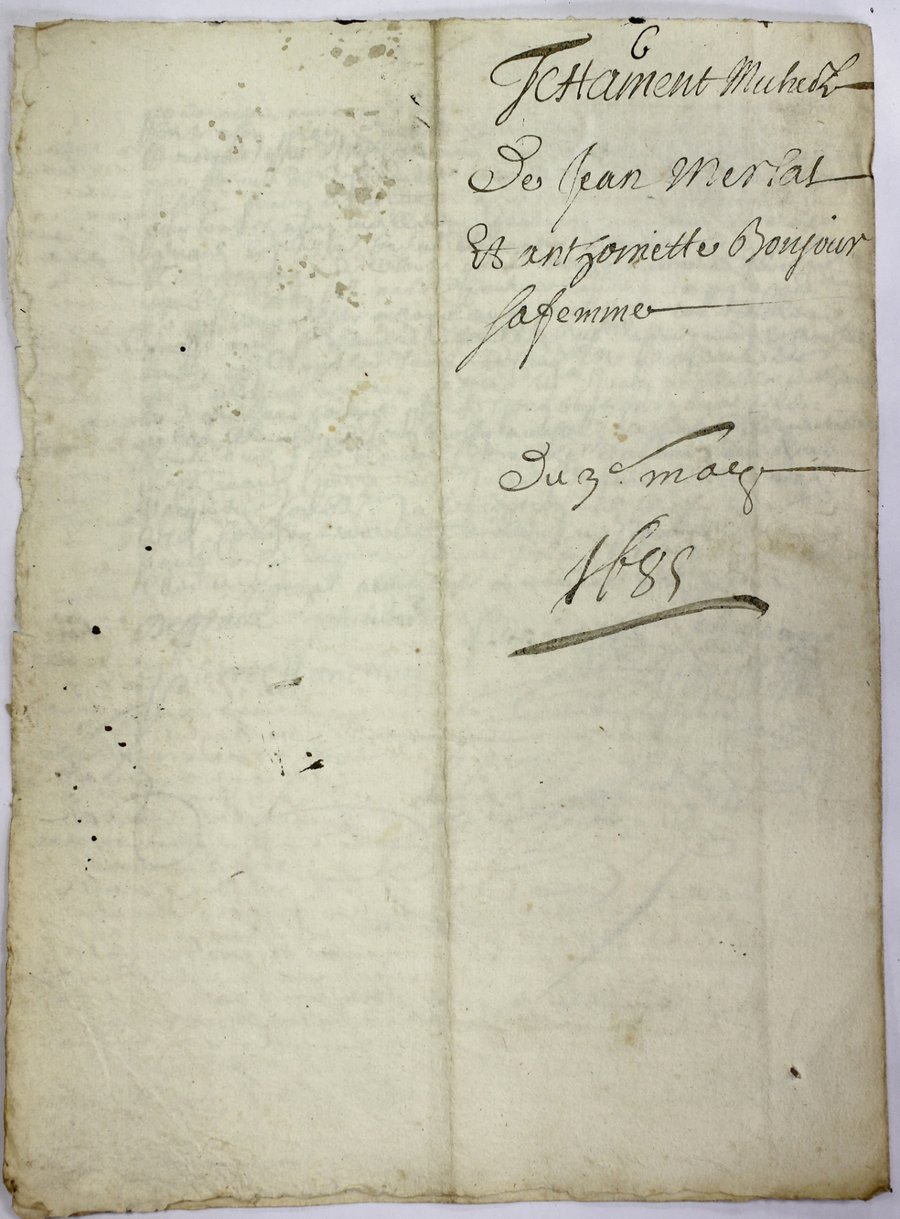 6
Testament Mutuel
De Jean Merlat
Et anthoinette Bonjour
sa femme
Du 3e. may
1685